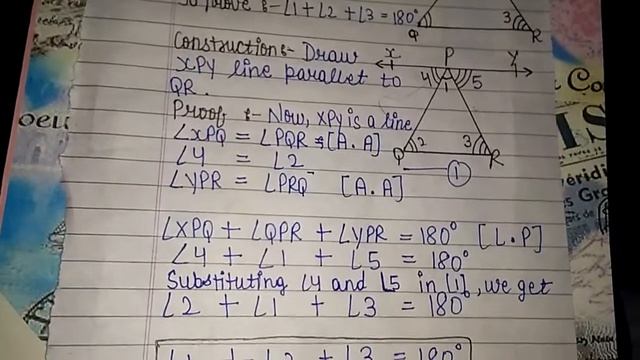 To prove :- ∠1 + ∠2 + ∠3 = 180°
Q 3 R
Construction:- Draw
XPY line parallel to
QR.
x P y
4 1 5
Q 2 3 R
Proof :- Now, XPY is a line
∠XPQ = ∠PQR [A.A]
∠4 = ∠2
∠YPR = ∠PRQ [A.A]
①
∠XPQ + ∠QPR + ∠YPR = 180° [L.P]
∠4 + ∠1 + ∠5 = 180°
Substituting ∠4 and ∠5 in (1), we get
∠2 + ∠1 + ∠3 = 180
∠1 + ∠2 + ∠3 = 180°